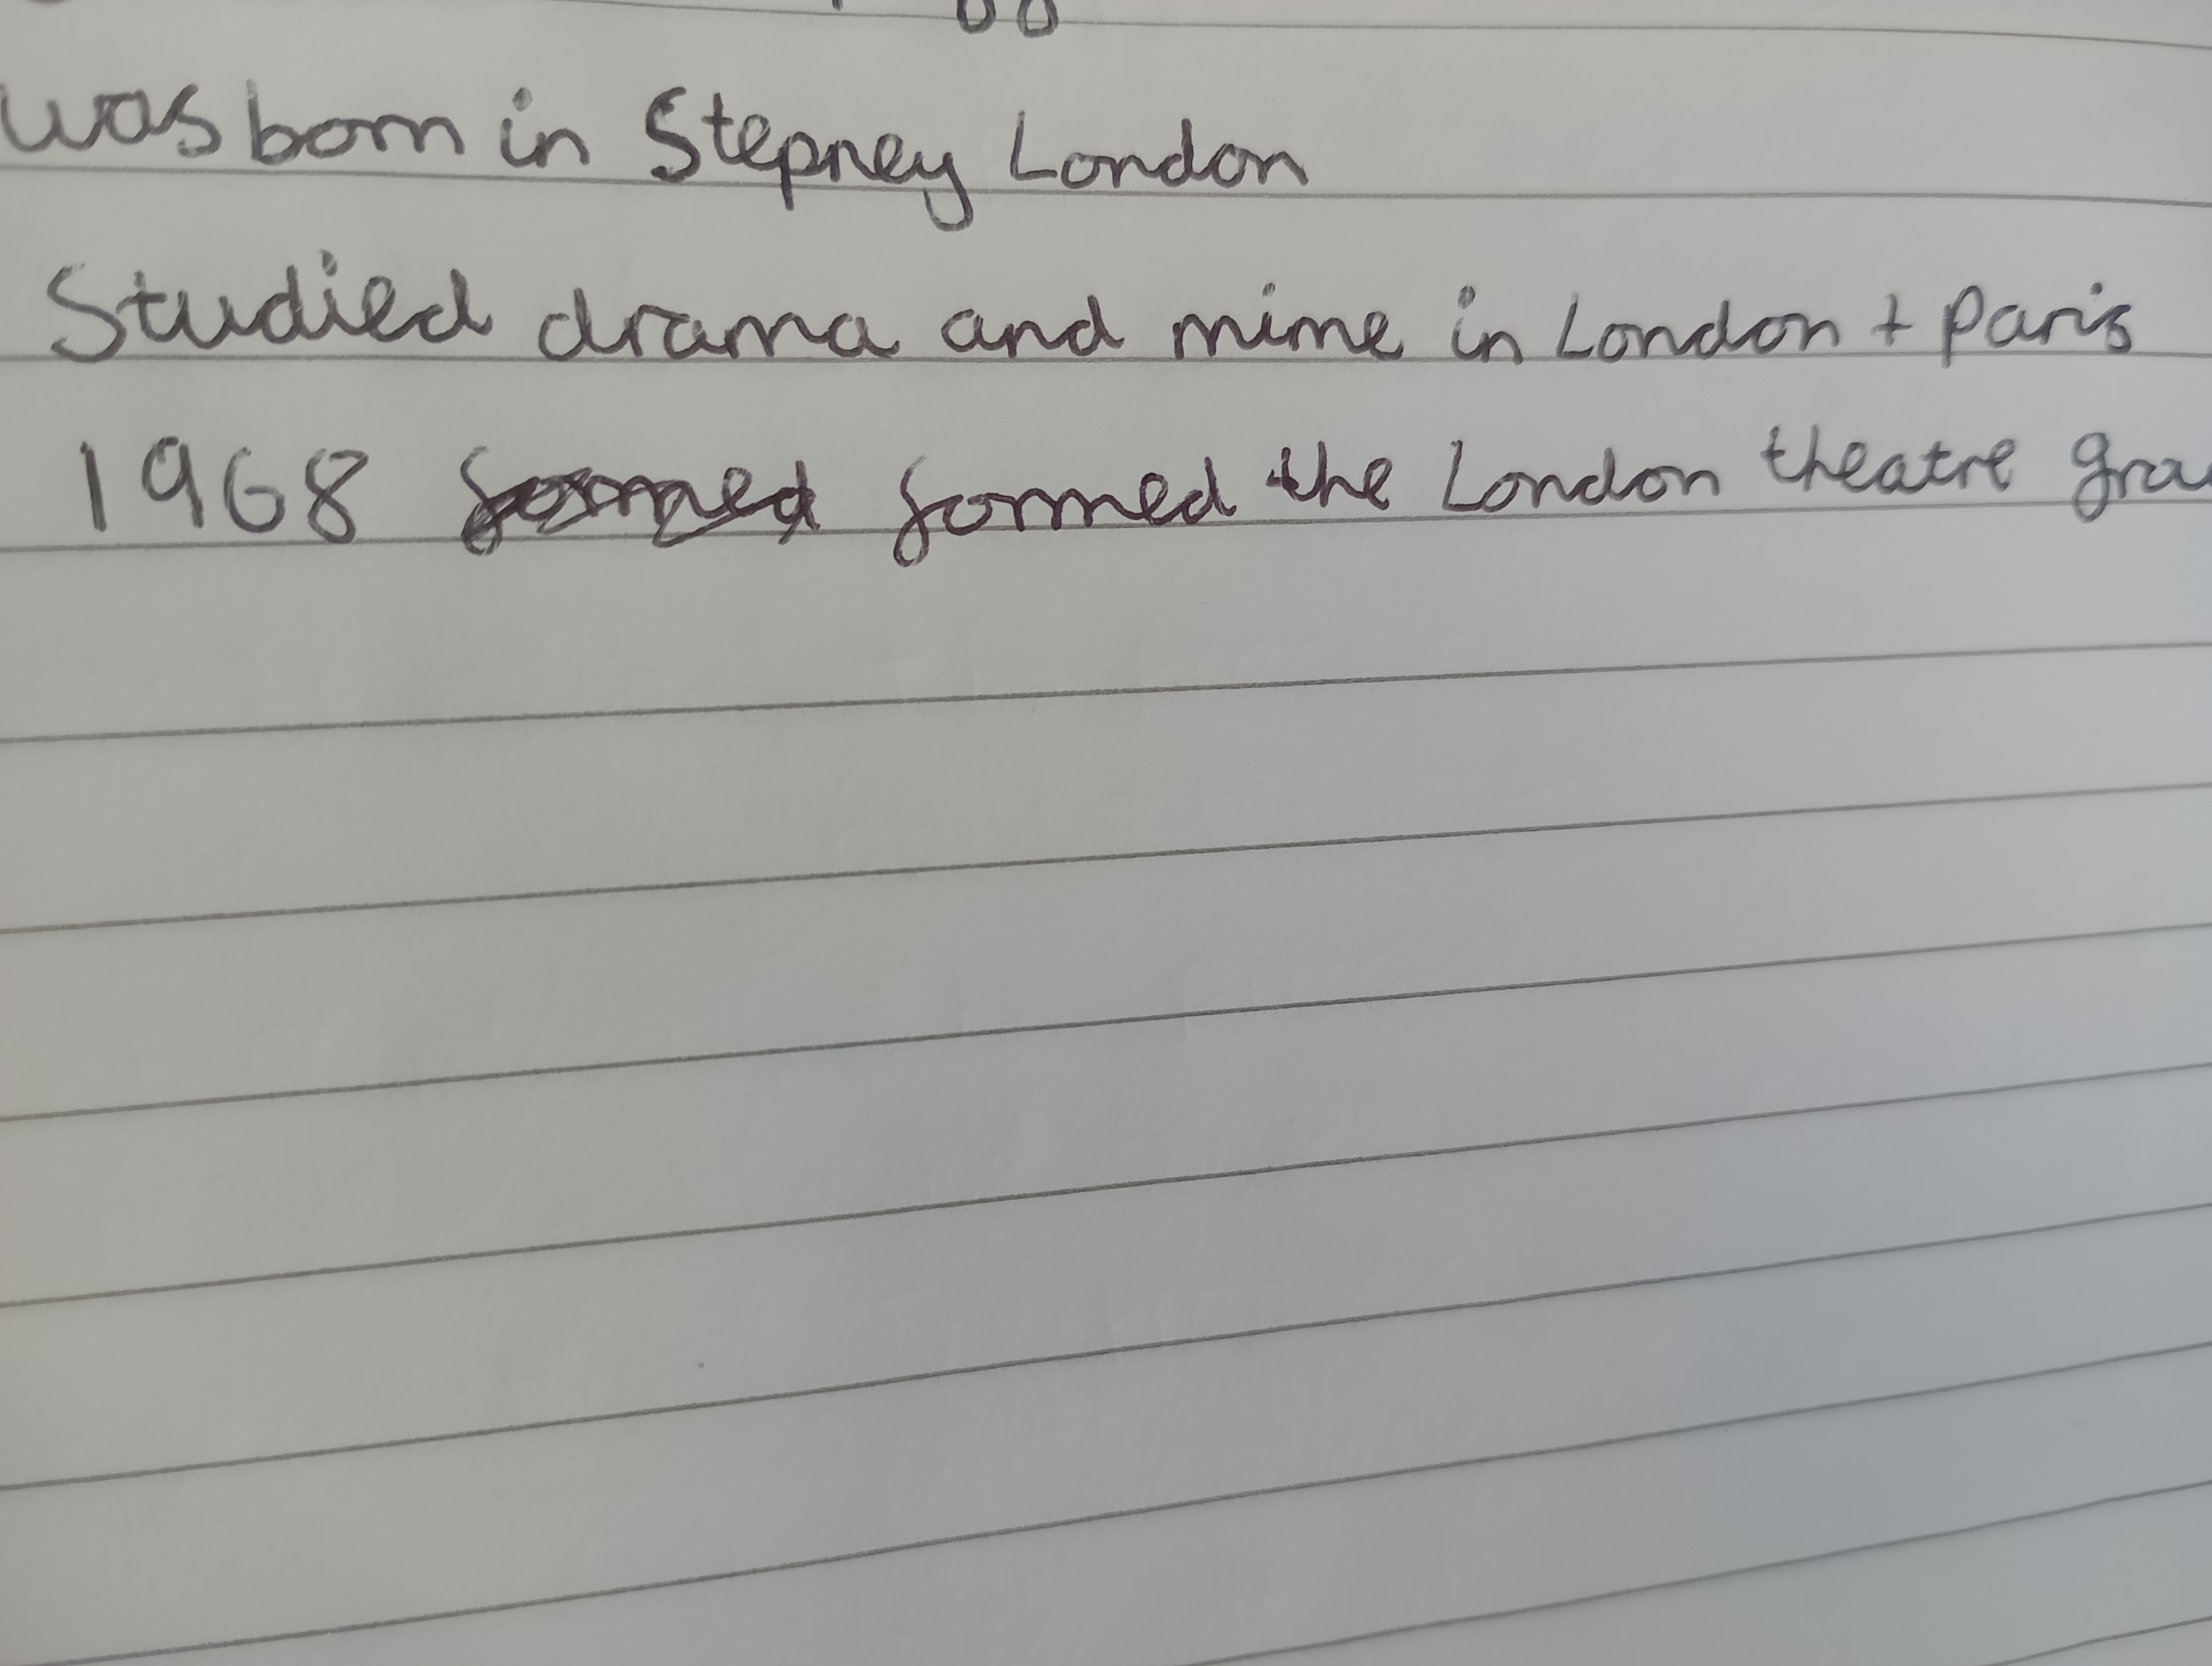 was born in Stepney London
Studied drama and mime in London + Paris
1968 formed the London theatre